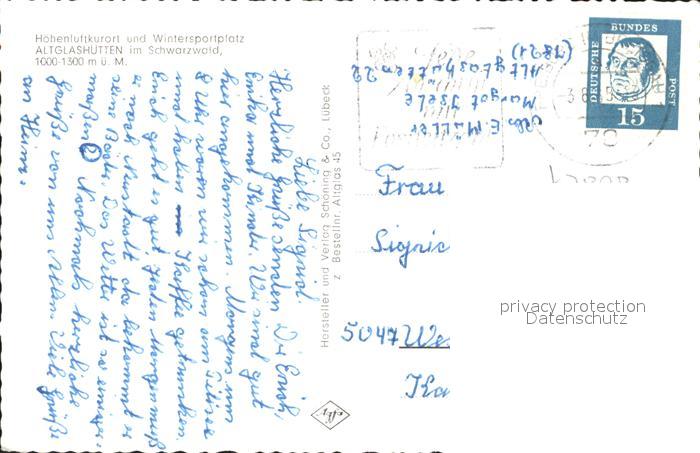 Höhenluftkurort und Wintersportplatz
ALTGLASHÜTTEN im Schwarzwald,
1000-1300 m ü. M.
Liebe Sigrid.
Herzliche Grüße senden Dir Erich,
und Kinder. Wir sind gut
hier angekommen. Morgens um
8 Uhr waren wir schon am Titisee
und haben Kaffee getrunken.
Erich geht es gut, jeden
er nach Neustadt da bekommt er
seine Bäder. Das Wetter ist so einiger-
maßen. Nochmals herzliche
Grüße von uns Allen Viele Grüße
an Heinz.
Hersteller und Verlag Schöning & Co., Lübeck
z Bestellnr. Altglas 45
Abs. E. Müller
Margot Isele
Altglashütten 22
(7821)
DEUTSCHE BUNDES POST
15
70
Frau
Sigrid
5047 We
Ka
privacy protection
Datenschutz